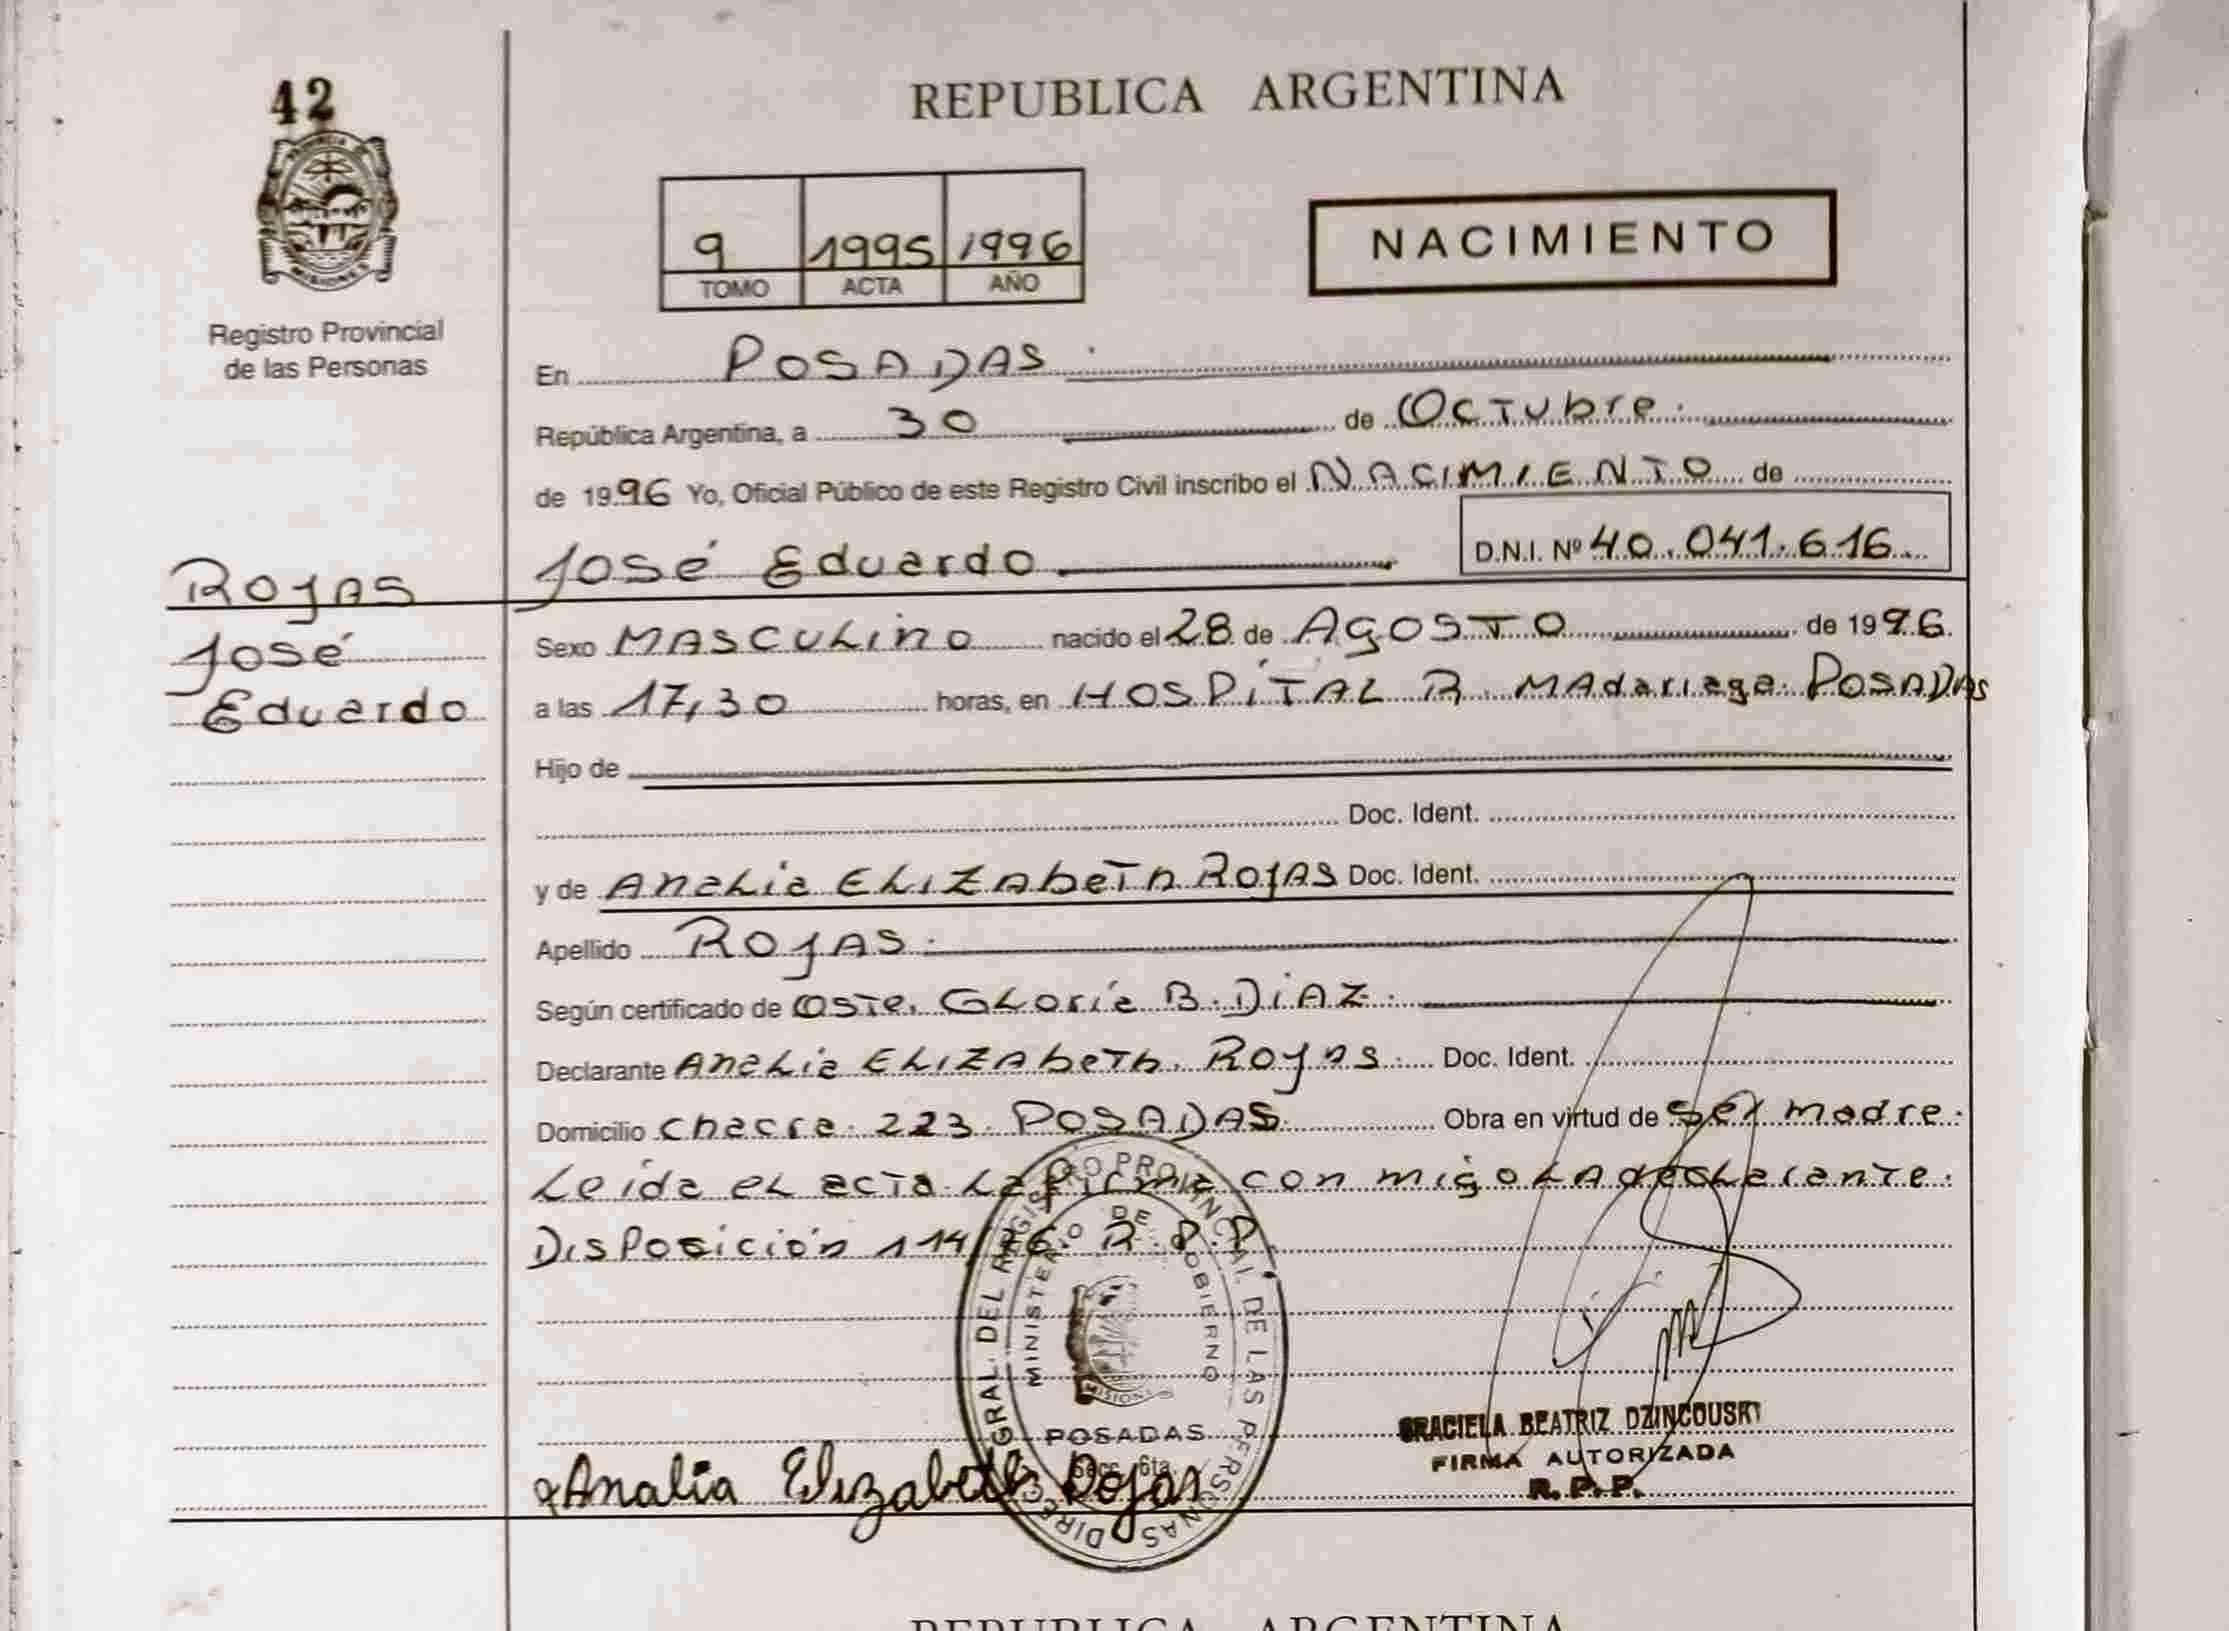 42
PROVINCIA DE
MISIONES
Registro Provincial
de las Personas
ROJAS
José
Eduardo
REPUBLICA ARGENTINA
9 1995 1996
TOMO ACTA AÑO
NACIMIENTO
En POSADAS.
República Argentina, a 30 de Octubre.
de 1996 Yo, Oficial Público de este Registro Civil inscribo el NACIMIENTO de
José Eduardo D.N.I. Nº 40.041.616
Sexo MASCULINO nacido el 28 de AGOSTO de 1996.
a las 17,30 horas, en HOSPITAL R. MAdariaga. POSADAS
Hijo de
Doc. Ident.
y de Analia ELIZAbeTh ROJAS Doc. Ident.
Apellido ROJAS.
Según certificado de OSTe. GLoria B. DIAZ.
Declarante Analia ELIZAbeTh. ROJAS. Doc. Ident.
Domicilio Chacra. 223. POSADAS. Obra en virtud de ser madre.
Leida eL acTa La firma con migo LA decLaranTe.
DISPosición 114/76. R.P.P.
DIRECC. GRAL. DEL REGISTRO PROVINCIAL DE LAS PERSONAS
MINISTERIO DE GOBIERNO
MISIONES
POSADAS
Secc. 6ta.
GRACIELA BEATRIZ DZINCOUSKI
FIRMA AUTORIZADA
R.P.P.
Analia Elizabeth Rojas
REPUBLICA ARGENTINA